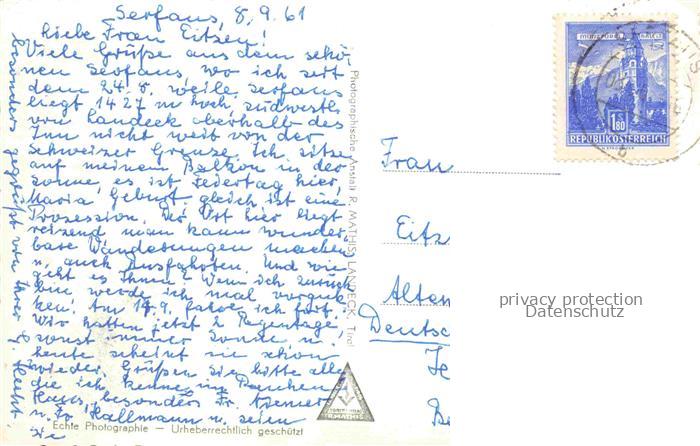 Serfaus, 8.9.61
Liebe Frau Eitzen!
Viele Grüße aus dem schö-
nen Serfaus, wo ich seit
dem 24.8. weile. Serfaus
liegt 1427 m hoch, südwestl.
von Landeck oberhalb des
Inn nicht weit von der
Schweizer Grenze. Ich sitze
auf meinem Balkon in der
Sonne, es ist Feiertag hier,
Maria Geburt, gleich ist eine
Prozession. Der Ort hier liegt
reizend man kann wunder-
bare Wanderungen machen
u. auch Ausfahrten. Und wie
geht es Ihnen? Wenn ich zurück
bin werde ich mal vorguk-
ken! Am 14.9. fahre ich fort.
Wir hatten jetzt 2 Regentage
sonst immer Sonne u.
heute scheint sie schon
wieder. Grüßen Sie bitte alle
die ich kenne im
Haus, besonders Fr.
u. Fr. Hallmann u. seien
Sie
besonders gegrüßt von Ihrer
Photographische Anstalt R. MATHIS, LANDECK, Tirol
Echte Photographie — Urheberrechtlich geschützt
R. MATHIS
1.80
REPUBLIK ÖSTERREICH
Frau
Eitz
Alten
Deutsc
privacy protection
Datenschutz